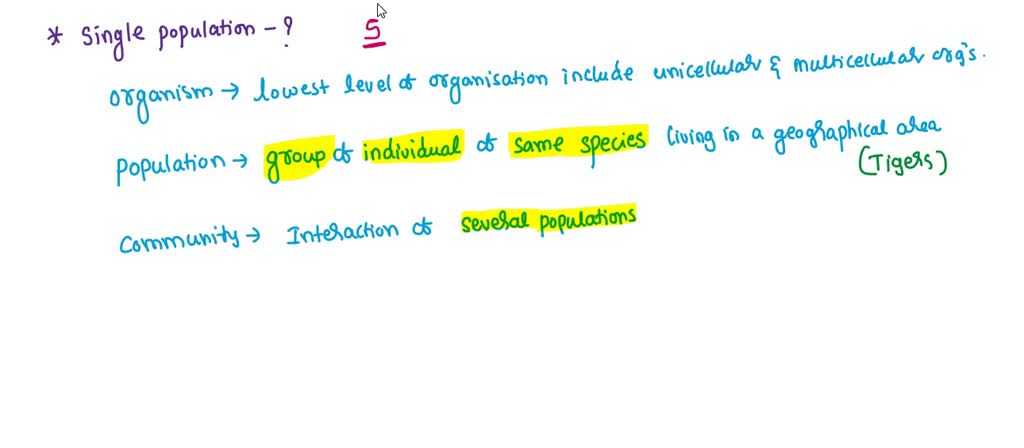 * Single population - ? 5
organism → lowest level of organisation include unicellular & multicellular org's.
population → group of individual of same species living in a geographical area
(Tigers)
community → Interaction of several populations